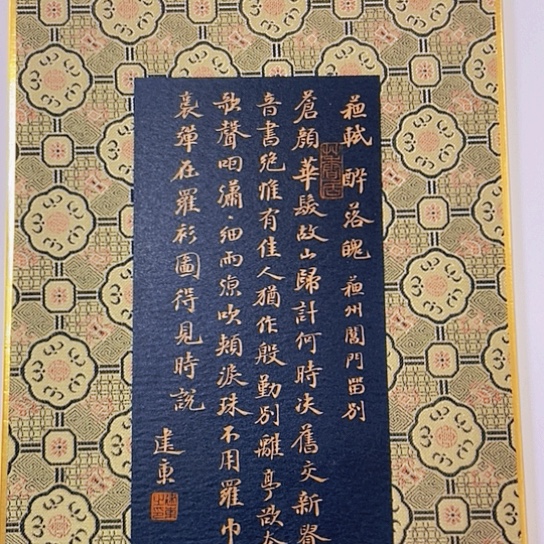 蘓軾 醉落魄 蘓州閶門畱别
蒼顏華髮故山歸計何時決舊交新貴
音書絶惟有佳人猶作殷勤别離亭欲去
歌聲咽瀟瀟細雨凉吹頰淚珠不用羅巾
裛彈在羅衫圖得見時説
建東